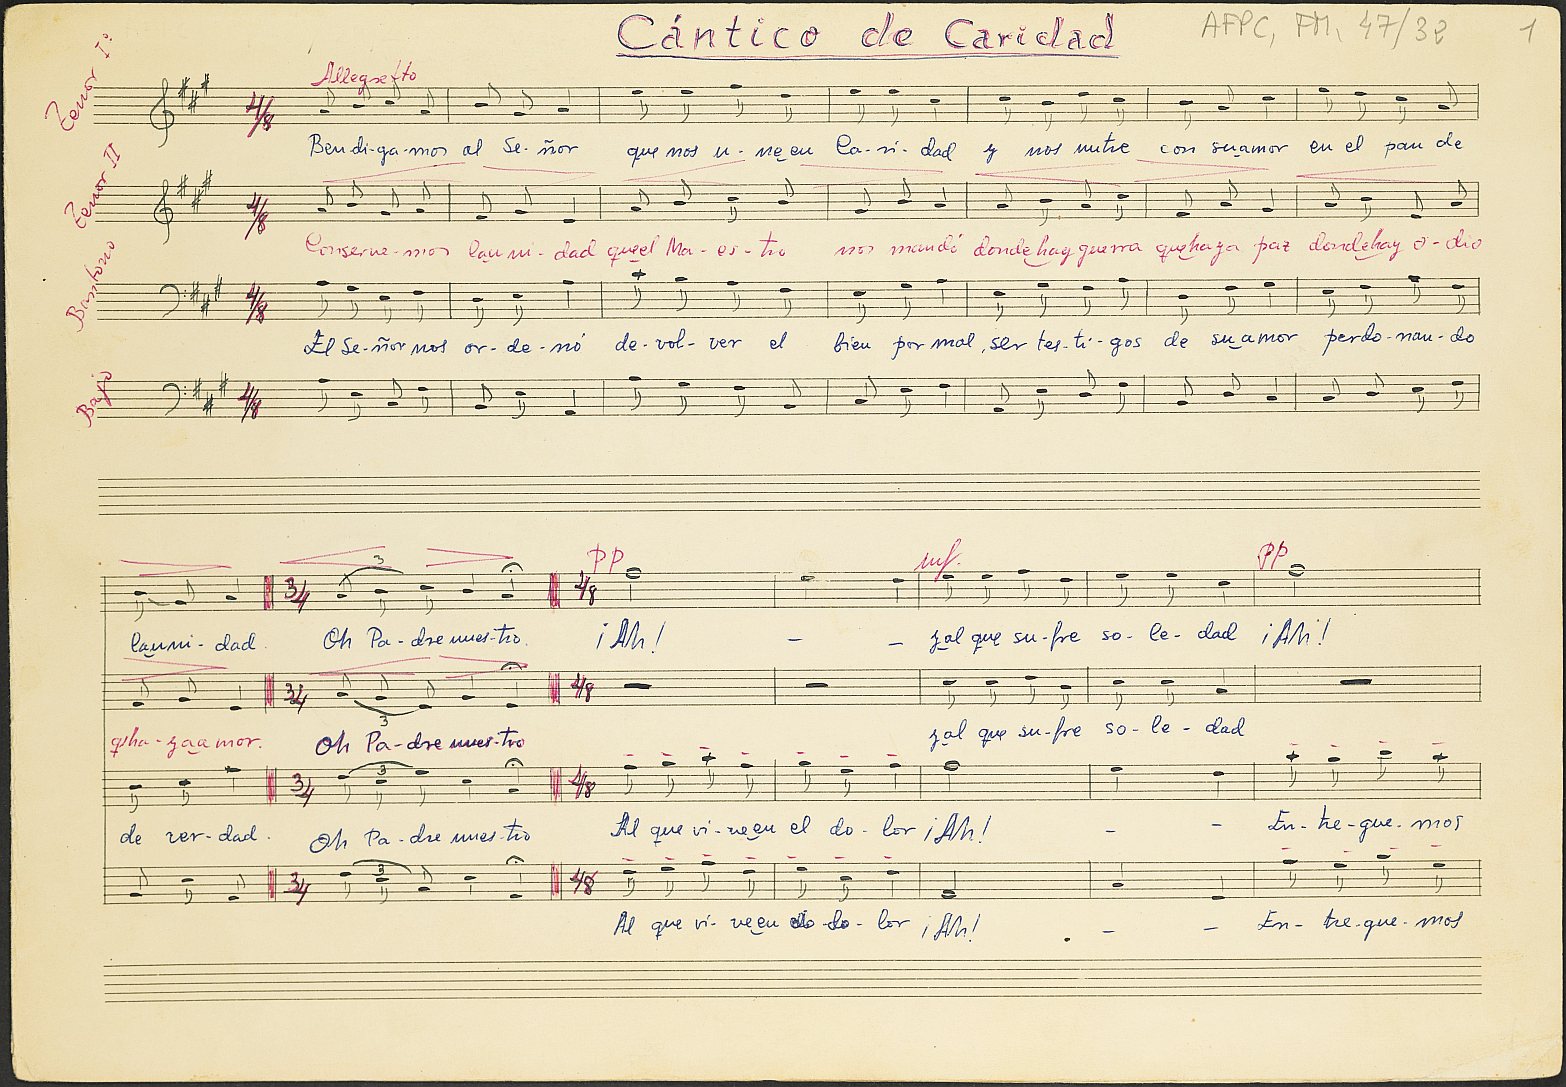 Cántico de Caridad
AFPC, FM, 47/32 1
Allegretto
Tenor Iº
4/8
Ben-di-ga-mos al Se-ñor que nos u-ne en Ca-ri-dad y nos nutre con su amor en el pan de
Tenor II
4/8
Conserve-mos la uni-dad que el Ma-es-tro nos mandó donde hay guerra que haya paz donde hay o-dio
Barítono
4/8
El Se-ñor nos or-de-nó de-vol-ver el bien por mal, ser tes-ti-gos de su amor perdo-nan-do
Bajo
4/8
3 PP mf. PP
3/4 4/8
la uni-dad. Oh Pa-dre nues-tro. ¡Ah! - - y al que su-fre so-le-dad ¡Ah!
3/4 4/8
3
q' ha-ya amor. Oh Pa-dre nues-tro y al que su-fre so-le-dad
3
3/4 4/8
de ver-dad. Oh Pa-dre nues-tro Al que vi-ve en el do-lor ¡Ah! - - En-tre-gue-mos
3
3/4 4/8
Al que vi-ve en do-lor ¡Ah! - - En-tre-gue-mos